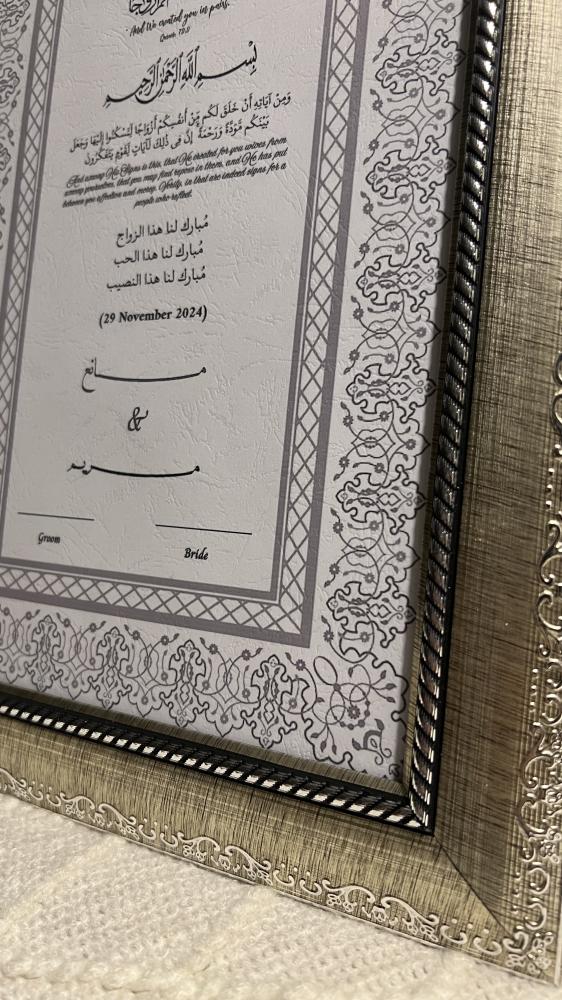 "And We created you in pairs."
بِسْمِ اللهِ الرَّحْمٰنِ الرَّحِيمِ
وَمِنْ آيَاتِهِ أَنْ خَلَقَ لَكُم مِّنْ أَنفُسِكُمْ أَزْوَاجًا لِّتَسْكُنُوا إِلَيْهَا وَجَعَلَ
بَيْنَكُم مَّوَدَّةً وَرَحْمَةً ۚ إِنَّ فِي ذَٰلِكَ لَآيَاتٍ لِّقَوْمٍ يَتَفَكَّرُونَ
And among His Signs is this, that He created for you wives from
among yourselves, that you may find repose in them, and He has put
between you affection and mercy. Verily, in that are indeed signs for a
people who reflect.
مُبارك لنا هذا الزواج
مُبارك لنا هذا الحب
مُبارك لنا هذا النصيب
(29 November 2024)
مـــانع
&
مـــريم
Groom
Bride